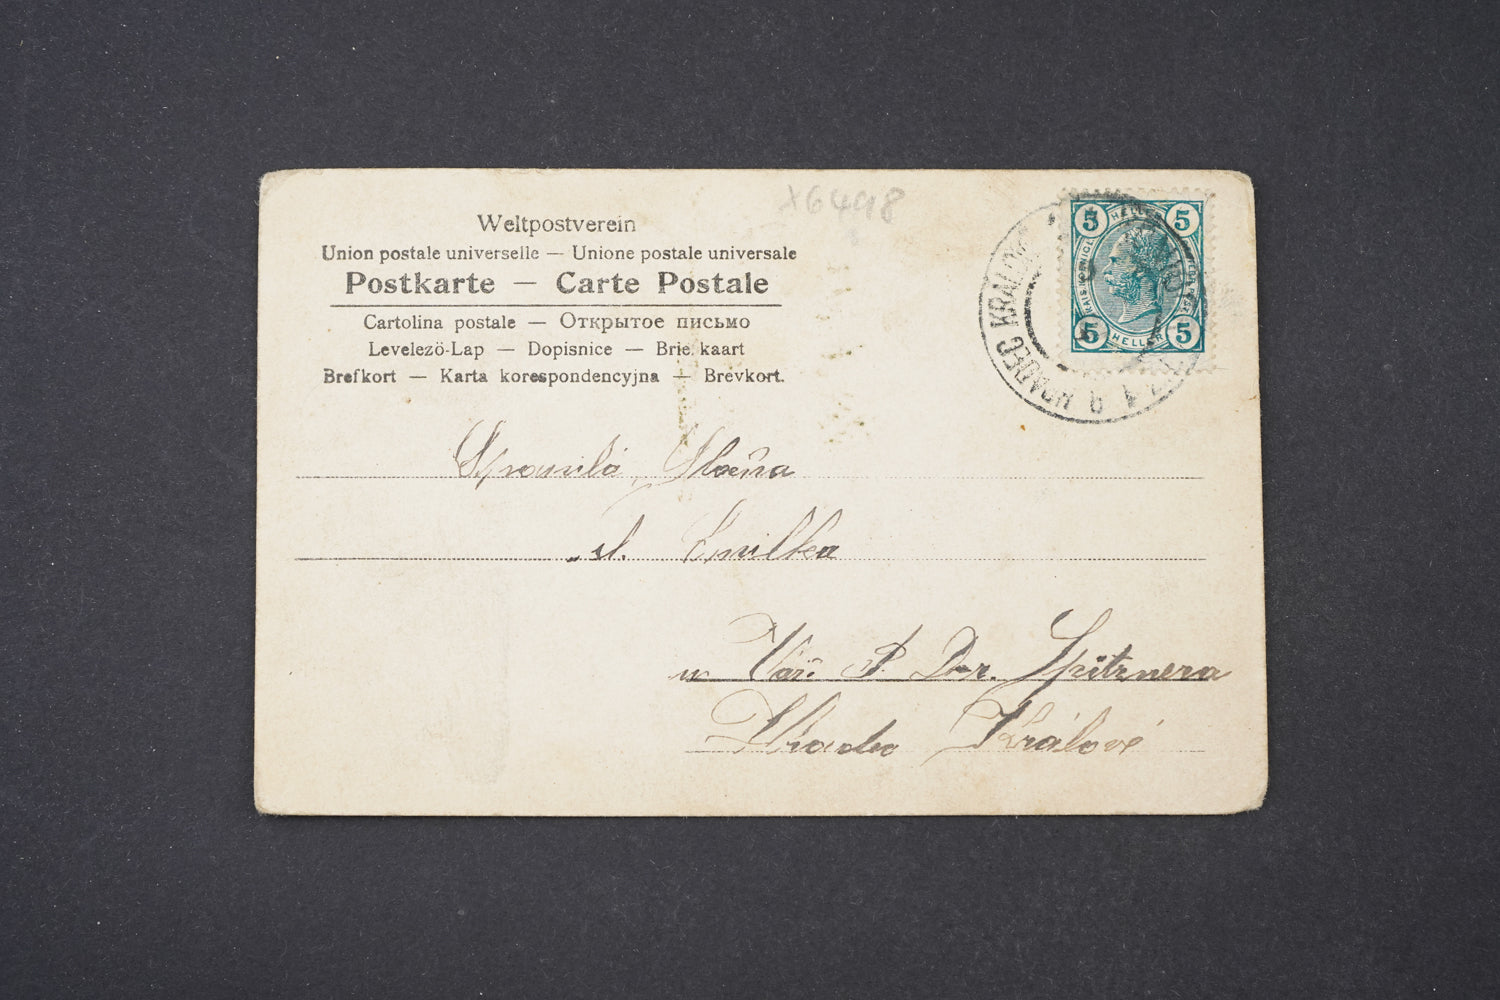 X6498
Weltpostverein
Union postale universelle — Unione postale universale
Postkarte — Carte Postale
Cartolina postale — Открытое письмо
Levelezö-Lap — Dopisnice — Brie. kaart
Brefkort — Karta korespondencyjna — Brevkort.
5 HELLER 5
5 HELLER 5
HRADEC KRÁLOVÉ
Slečna
Emilka
u Dr. Spitznera
Hradec Králové